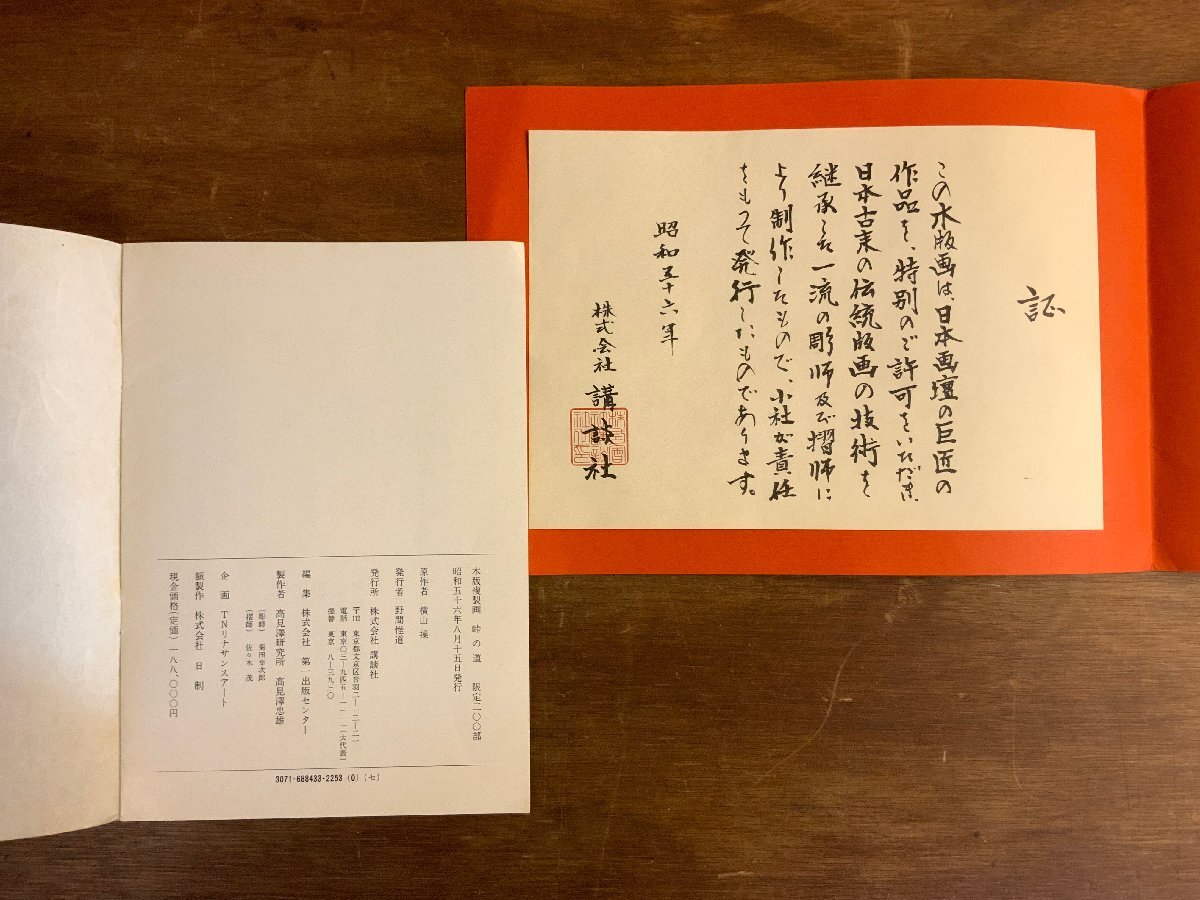 証
この木版画は、日本画壇の巨匠の
作品を、特別のご許可をいただき、
日本古来の伝統版画の技術を
継承した一流の彫師及び摺師に
より制作したもので、小社が責任
をもって発行したものであります。
昭和五十六年
株式会社 講談社
木版複製画 峠の道 限定二〇〇部
昭和五十六年八月十五日発行
原作者 横山 操
発行者 野間惟道
発行所 株式会社 講談社
〒112 東京都文京区音羽二ー一二ー二一
電話 東京〇三ー九四五ー一一一一(大代表)
振替 東京 八ー三九三〇
編 集 株式会社 第一出版センター
製作者 高見澤研究所 高見澤忠雄
(彫師) 菊田幸次郎
(摺師) 佐々木 茂
企 画 TNリナサンスアート
額製作 株式会社 日 制
現金価格(定価) 一八八、〇〇〇円
3071-688433-2253 (0) (セ)